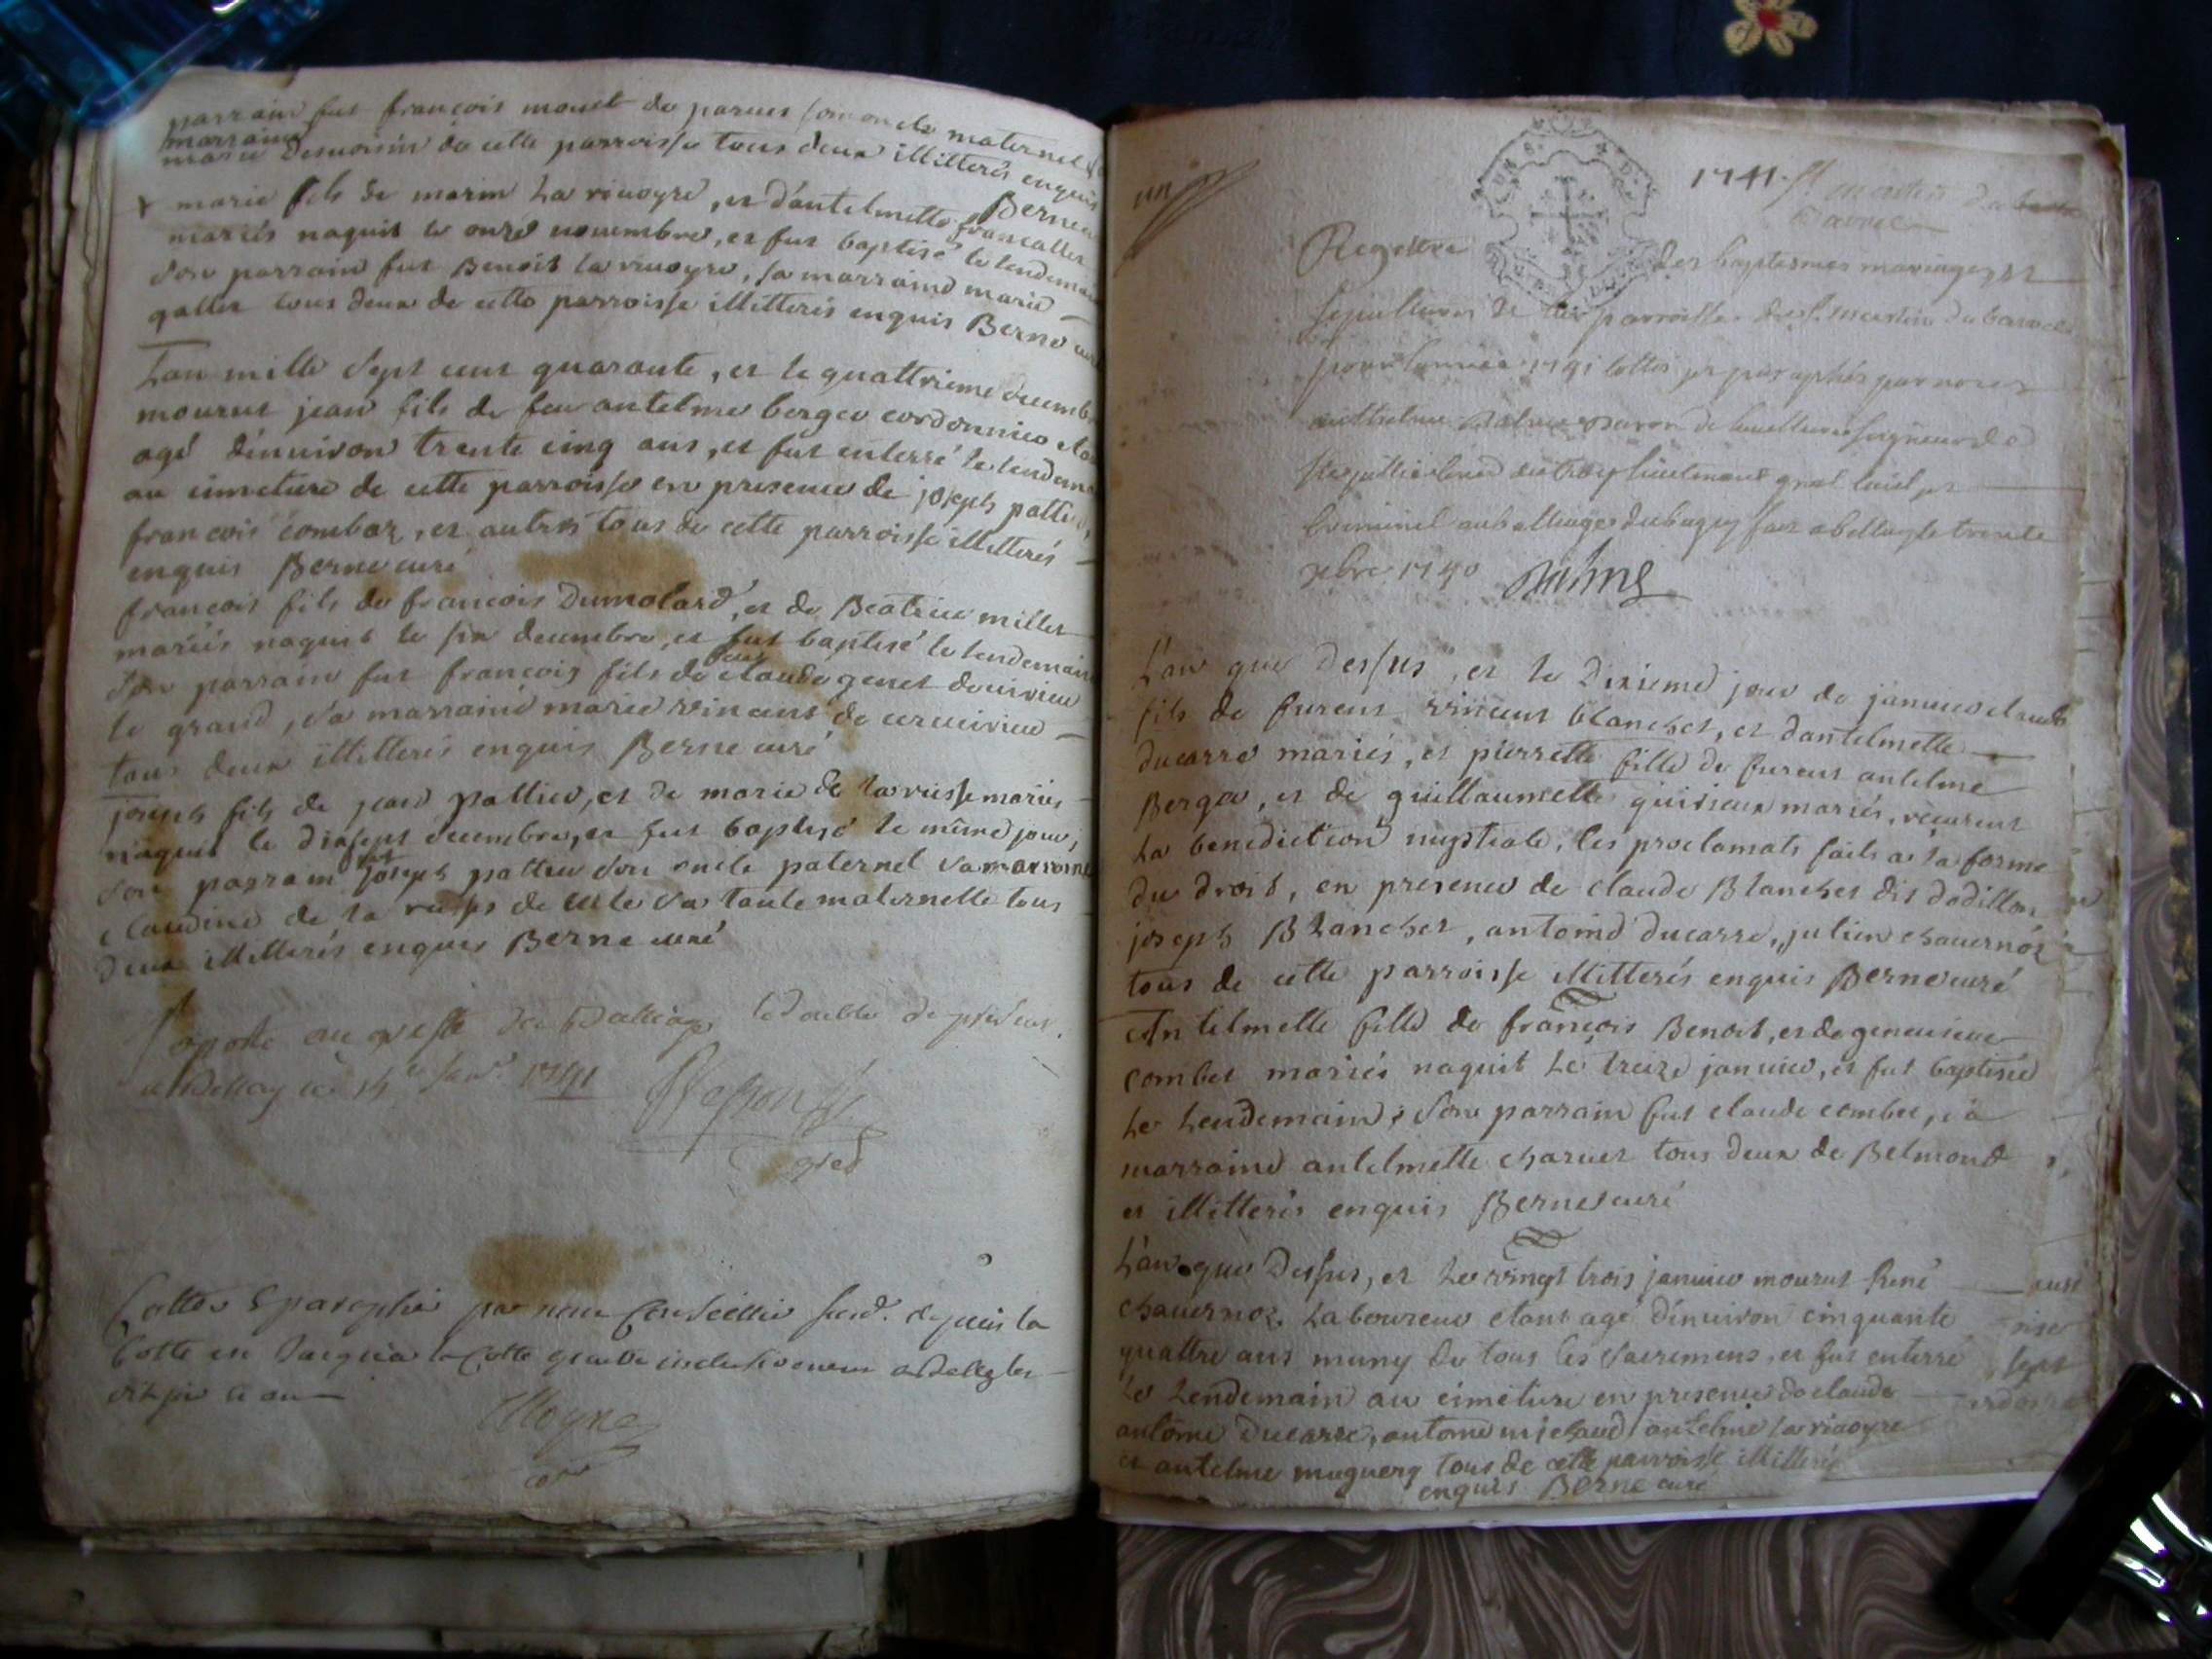 parrain fut françois mouet de parues son oncle maternel &
marraine
marie Demoisin de cette parroisse tous deux illitterés enquis
Berne
marie fils de marin La riuoyre, et d'antelmette francallet
mariés naquit le onze nouembre, et fut baptisé le lendemain
son parrain fut Benoit la riuoyre, sa marraine marie
gallet tous deux de cette parroisse illitterés enquis Berne curé
L'an mille sept cent quarante, et le quattrieme decembre
mourut jean fils de feu antelme berger cordonnier
agé d'enuiron trente cinq ans, et fut enterré le lendemain
au cimetiere de cette parroisse en presence de joseph pattieu,
francois combaz, et autres tous de cette parroisse illitterés
enquis Berne curé
francois fils de francois Dumolard, et de Beatrice millet
mariés naquit le six decembre, et fut baptisé le lendemain
son parrain fut françois fils de feu claude genet de uirieu
le grand, sa marraine marie vincent de ceruirieu
tous deux illitterés enquis Berne curé
joseph fils de jean pattieu, et de marie de la russe mariés
naquit le dixsept decembre, et fut baptisé le même jour;
son parrain fut joseph pattieu son oncle paternel sa marraine
claudine de la russe de sa tante maternelle tous
deux illitterés enquis Berne curé
aporté au greffe du Balliage le double du présent
a Bellay ce 14e janr. 1741
gref
Cottes & paraphé par nous Conseillier depuis la
Cotte un jusqu'a la Cotte quattre inclusivement a Belley les
dit jour et an
Moyne
un
1741. St martin de
Bavrel
Registre des baptesmes mariages et
sepultures de la parroisse de St. martin de bavrel
pour l'année 1741 cottés et paraphés par nous
anthelme Balme Baron de seigneur de
lieutenant gnal ciuil et
Criminel au balliage du bugey fait a belley le trente
xbre 1740 Balme
L'an que dessus, et le dixieme jour de januier claude
fils de furent vincent blanchet, et d'antelmette
ducarre mariés, et pierrette fille de furent antelme
Berger, et de guillaumette guiseux mariés, reçurent
La benediction nuptiale, les proclamats faits a la forme
du droit, en presence de claude Blanchet dit dodillon
joseph Blanchet, antoine ducarre, julien chauernoz
tous de cette parroisse illitterés enquis Berne curé
Antelmette fille de françois Benoit, et de geneuieue
combet mariés naquit le treize januier, et fut baptisée
Le Lendemain; son parrain fut claude combet, sa
marraine antelmette charuet tous deux de Belmond
et illitterés enquis Berne curé
L'an que Dessus, et le vingt trois januier mourut René
chauernoz Laboureur etant agé d'enuiron cinquante
quattre ans muny de tous les sacremens, et fut enterré
Le Lendemain au cimetiere en presence de claude
antoine Ducarre, antoine michaud antelme la riuoyre
et antelme muguery tous de cette parroisse illitterés
enquis Berne curé